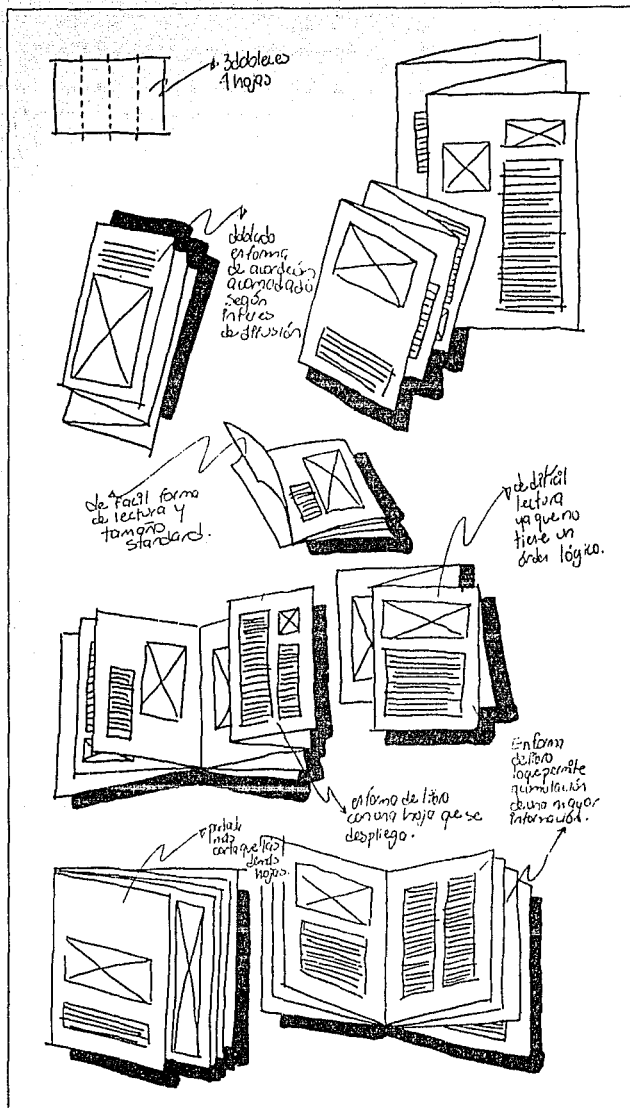 3 dobleces
4 hojas
doblado
en forma
de acordeón
acomodado
según
interes
de difusión
de facil forma
de lectura y
tamaño
standard.
de dificil
lectura
ya que no
tiene un
orden lógico.
en forma de libro
con una hoja que se
despliega.
En forma
de libro
lo que permite
acumulación
de una mayor
información.
portada
más
corta que las
demás
hojas.